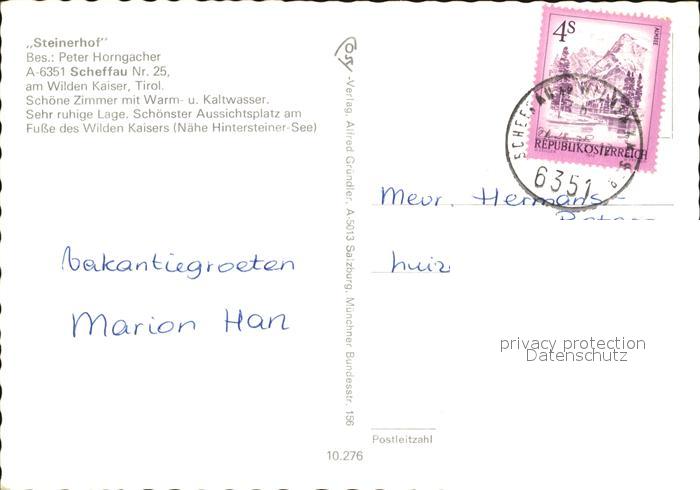 „Steinerhof“
Bes.: Peter Horngacher
A-6351 Scheffau Nr. 25,
am Wilden Kaiser, Tirol.
Schöne Zimmer mit Warm- u. Kaltwasser.
Sehr ruhige Lage. Schönster Aussichtsplatz am
Fuße des Wilden Kaisers (Nähe Hintersteiner-See)
Vakantiegroeten
Marion Han
Cosy-Verlag, Alfred Gründler, A-5013 Salzburg, Münchner Bundesstr. 156
10.276
4S
REPUBLIK ÖSTERREICH
6351
Mevr. Hermans-
huiz
privacy protection
Datenschutz
Postleitzahl